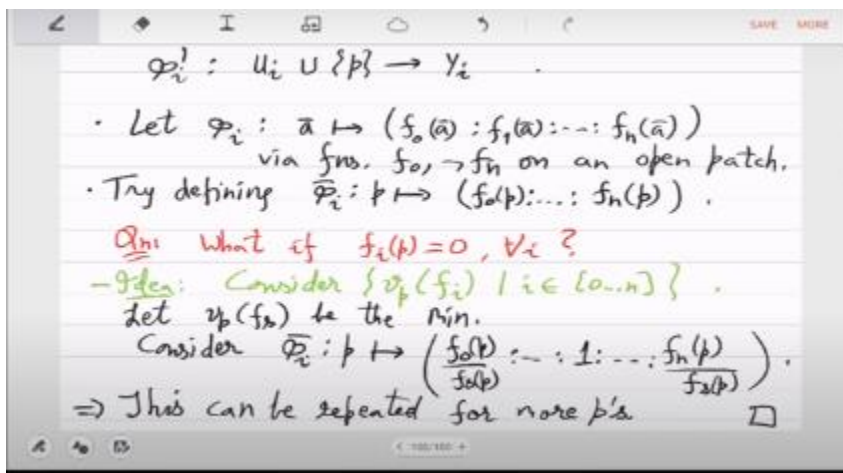 SAVE MORE
φ'ᵢ : Uᵢ ∪ {p} → Yᵢ .
· Let φᵢ : ā ↦ (f₀(ā) : f₁(ā) : --- : fₙ(ā))
via fns. f₀, ⇁ fₙ on an open patch.
· Try defining φ̄ᵢ : p ↦ (f₀(p) : ... : fₙ(p)) .
Qn: What if fᵢ(p) = 0, ∀i ?
- Idea: Consider {vₚ(fᵢ) | i ∈ [0...n]} .
Let vₚ(fₛ) be the min.
Consider φ̄ᵢ : p ↦ (f₀(p)/fₛ(p) : --- : 1 : --- : fₙ(p)/fₛ(p)) .
⇒ This can be repeated for more p's □
< 100/100 +